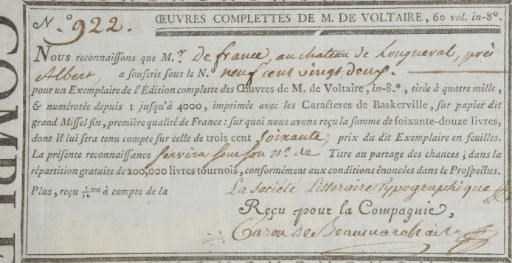 N.º 922. ŒUVRES COMPLETTES DE M. DE VOLTAIRE, 60 vol. in-8º.
Nous reconnaissons que M.r De france, au chateau de Longueval, près
Albert, a souscrit sous le N.º neuf cent vingt deux.
pour un Exemplaire de l'Edition complette des Œuvres de M. de Voltaire, in-8.º, tirée à quatre mille,
& numérotée depuis 1 jusqu'à 4000, imprimée avec les Caracteres de Baskerville, sur papier dit
grand Messel fin, première qualité de France: sur quoi nous avons reçu la somme de soixante-douze livres,
dont il lui sera tenu compte sur celle de trois cent soixante prix du dit Exemplaire en feuilles.
La présente reconnaissance servira sous son n.º de Titre au partage des chances; dans la
répartition gratuite de 200,000 livres tournois, conformément aux conditions énoncées dans le Prospectus.
Plus, reçu à compte de la La Société Littéraire Typographique
Reçu pour la Compagnie,
Caron de Beaumarchais
COMPLE